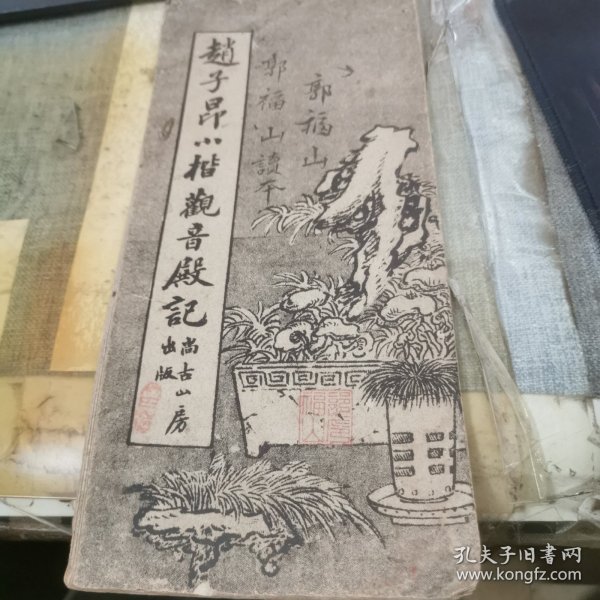 趙子昂小楷觀音殿記
尚古山房
出版
郭福山
郭福山讀本
孔夫子旧书网
www.kongfz.com